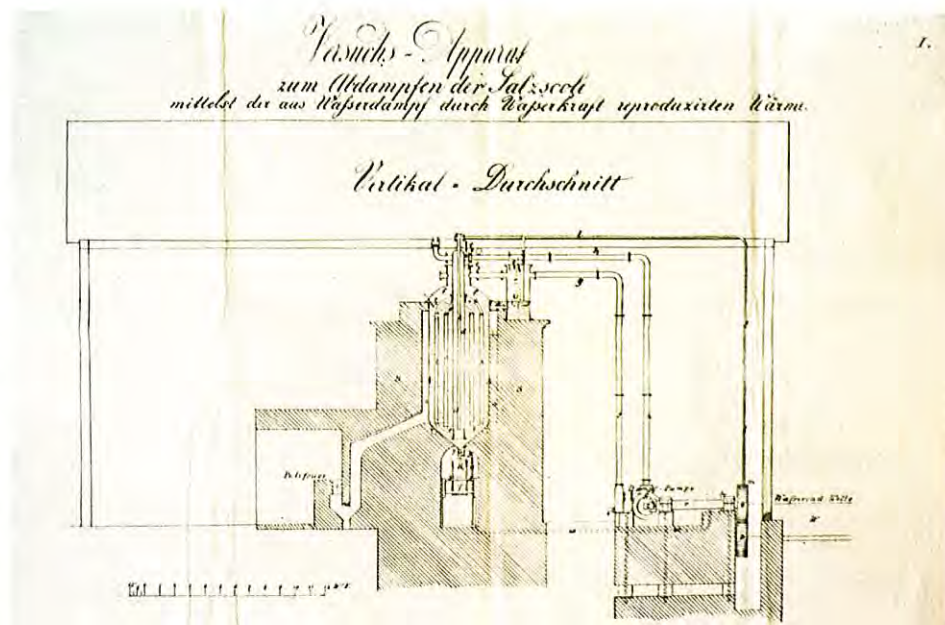 I.
Versuchs-Apparat
zum Abdampfen der Salzsoole
mittelst der aus Waßerdampf durch Waßerkraft reproduzirten Wärme.
Vertikal-Durchschnitt
i
h
g
Pumpe
Wasserrad Welle